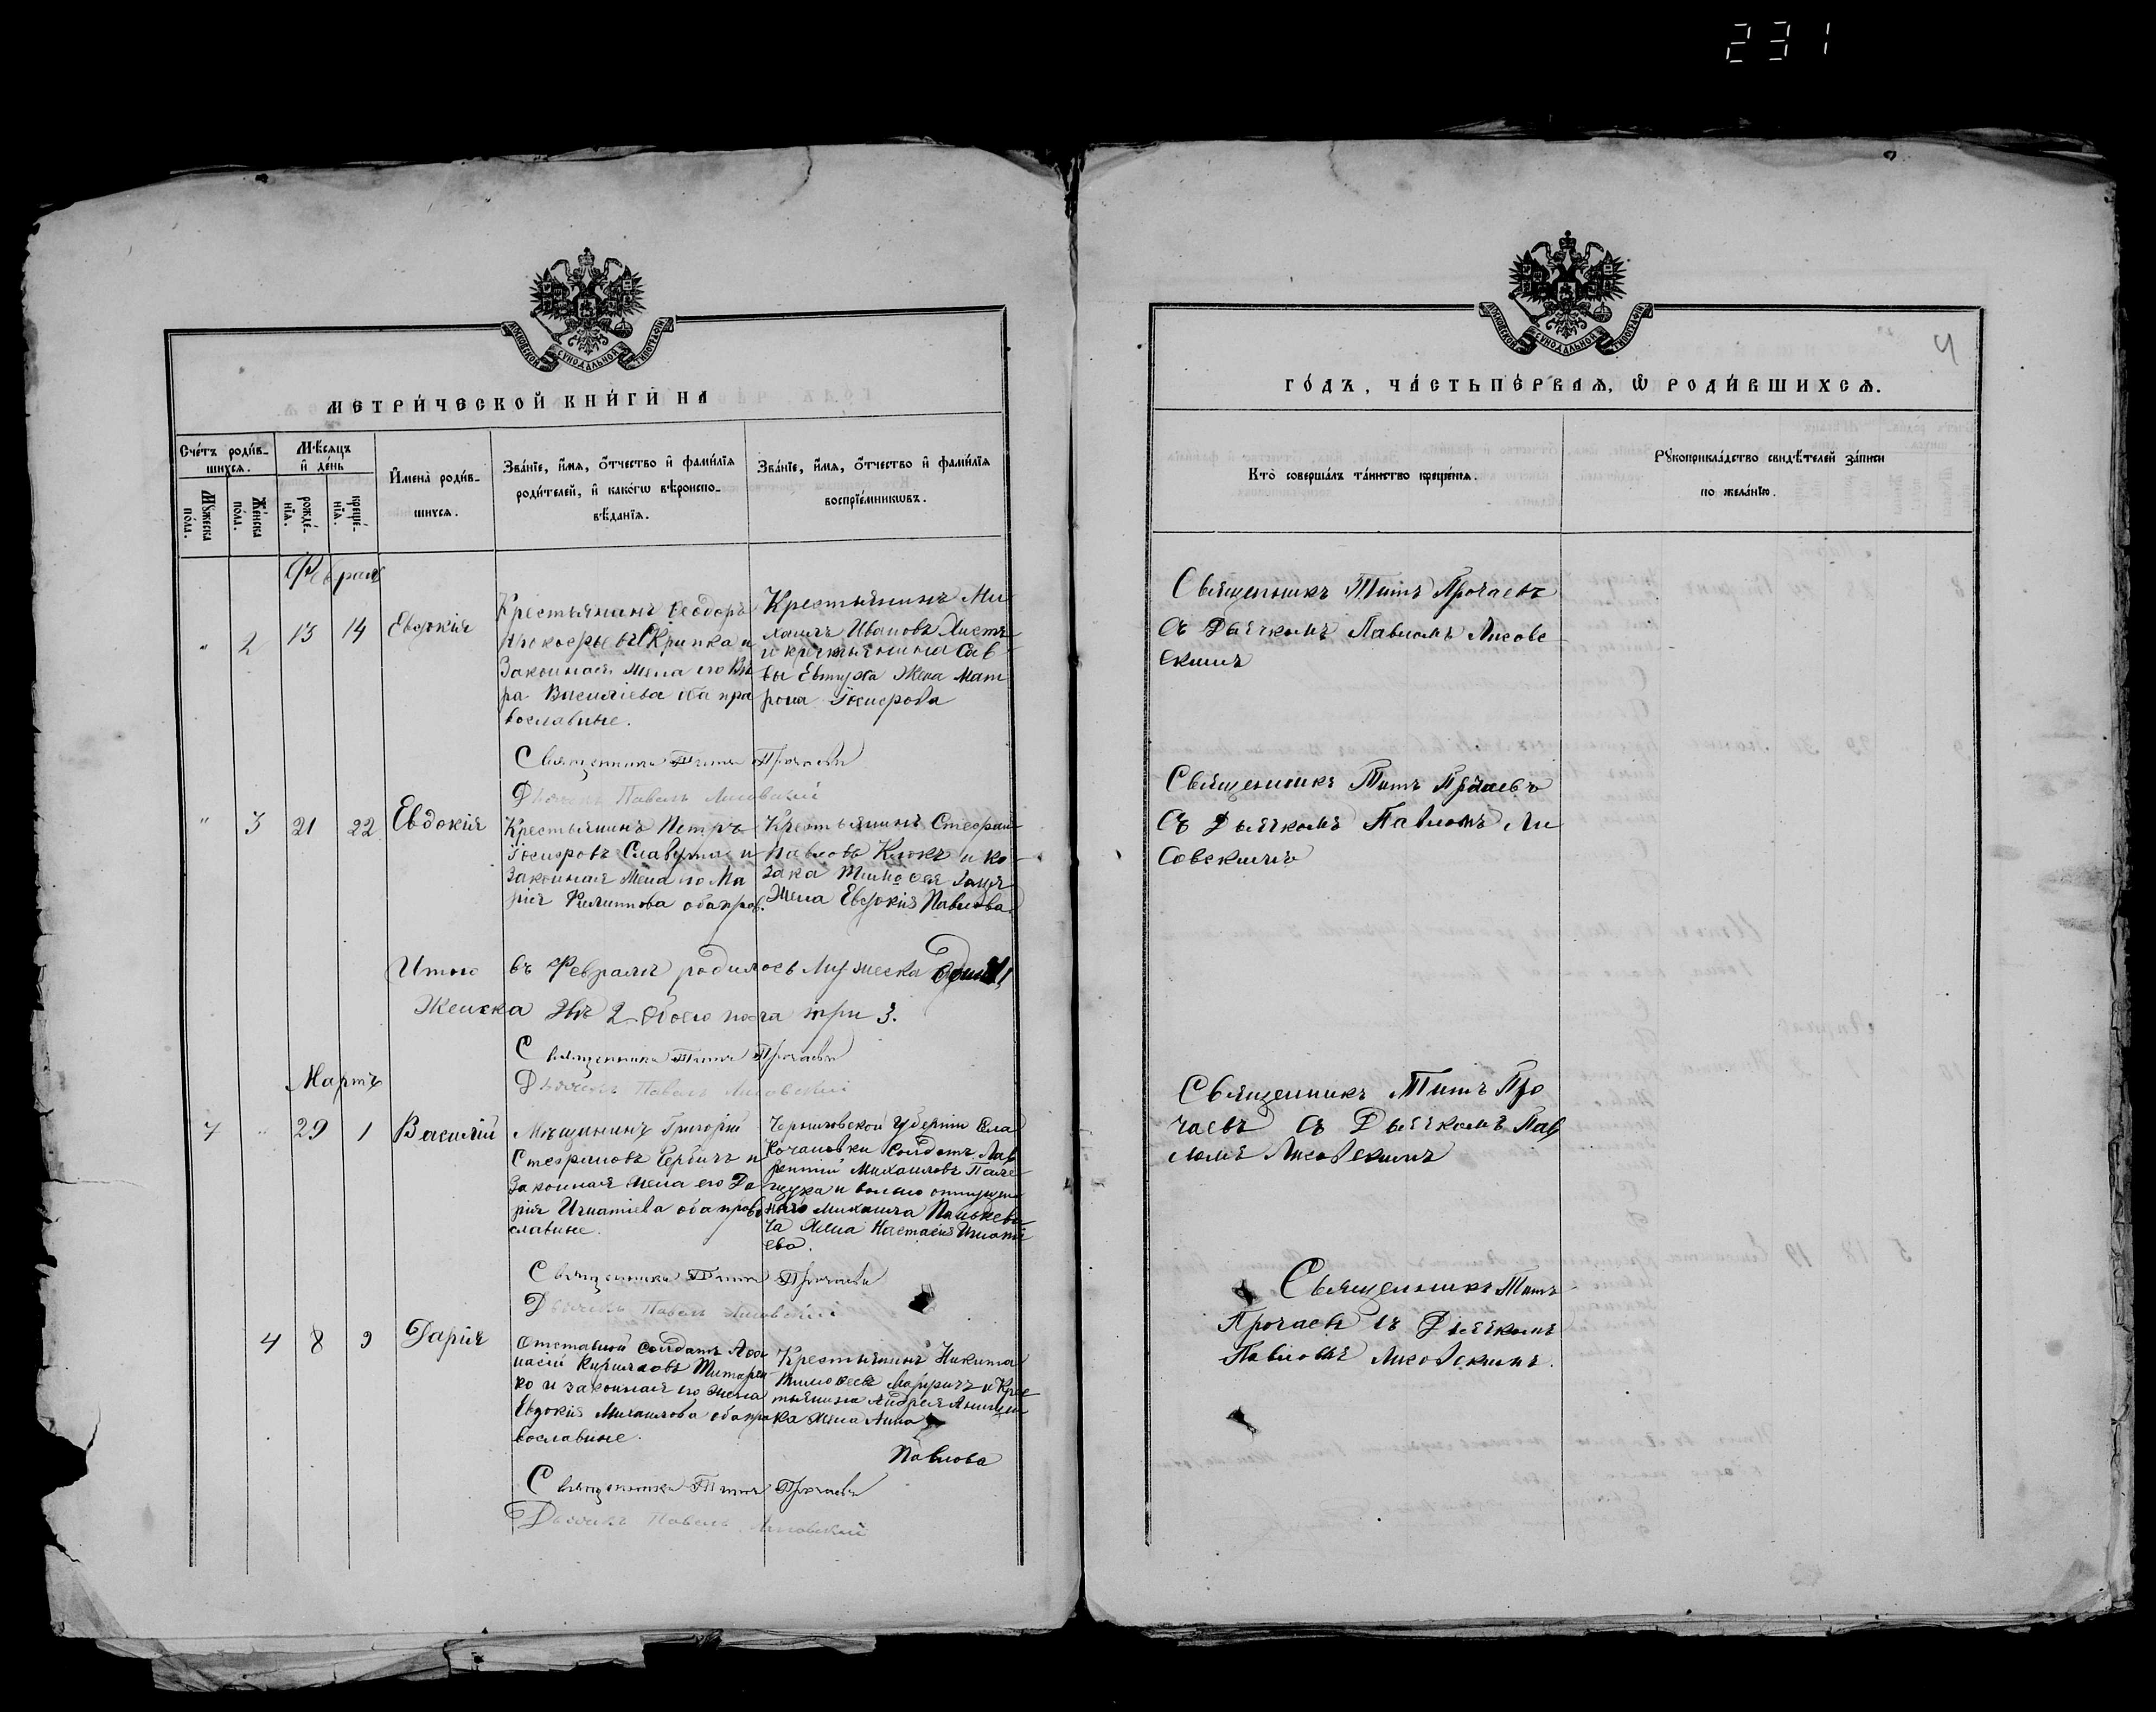 231
МОСКОВСКОЙ СѴНОДАЛЬНОЙ ТИПОГРАФІИ
МЕТРИ́ЧЕСКОЙ КНИ́ГИ НА
Сче́тъ роди́в-
шихсѧ.
Мѣ́сѧцъ
и҆ де́нь
И҆мена̀ роди́в-
шихсѧ.
Зва́нїе, и҆́мѧ, ѻ҆́тчество и҆ фами́лїѧ
роди́телей, и҆ како́гѡ вѣроиспо-
вѣ́данїѧ.
Зва́нїе, и҆́мѧ, ѻ҆́тчество и҆ фами́лїѧ
воспрїе́мникѡвъ.
Мꙋ́жеска
по́ла.
Же́нска
по́ла.
рожде́-
нїѧ.
креще́-
нїѧ.
Февраль
" 2 13 14 Евдокія
Крестьянинъ Ѳеодоръ
Крипка и
Законная жена его Вѣ
ра Василіева оба пра
вославные.
Крестьянинъ Ми
хаилъ Ивановъ Листъ
и крестьянина Сав
вы Евтуха Жена Мат
рона Іосифова
Священникъ Титъ Прочаевъ
Дьячекъ Павелъ Лисовскій
" 3 21 22 Евдокія
Крестьянинъ Петръ
Іосифовъ Славута и
Законная Жена его Ма
рія Филипова оба прав.
Крестьянинъ Стефанъ
Павловъ Клюкъ и ко
зака Тимофея
Жена Евдокія Павлова
Итого въ Февралѣ родилось Мужеска одинъ 1
Женска двѣ 2 обоего пола три 3.
Священникъ Титъ Прочаевъ
Дьячекъ Павелъ Лисовскій
Мартъ
7 " 29 1 Василій
Мѣщанинъ Григорій
Стефановъ Сербинъ и
Законная жена его Да
рія Игнатіева оба право
славные.
Черниговской губерніи Села
Кочановки Солдатъ Лав
рентій Михаиловъ Пале
щука и вольно отпущен
наго Михаила Панькеви
ча Жена Настасія Игнаті
ева.
Священникъ Титъ Прочаевъ
Дьячекъ Павелъ Лисовскій
4 8 9 Дарія
Отставной Солдатъ Аѳа
насій Кириловъ Титарен
ко и законная его жена
Евдокія Михаилова оба пра
вославные.
Крестьянинъ Никита
Тимофеевъ и Крес
тьянина Андрея Анищен
ка жена Анна
Павлова
Священникъ Титъ Прочаевъ
Дьячекъ Павелъ Лисовскій
МОСКОВСКОЙ СѴНОДАЛЬНОЙ ТИПОГРАФІИ
4
ГО́ДЪ, ЧА́СТЬ ПЕ́РВАѦ, Ѡ҆ РОДИ́ВШИХСѦ.
Кто̀ соверша́лъ та́инство креще́нїѧ.
Рꙋкоприкла́дство свидѣ́телей за́писи
по жела́нїю.
Священникъ Титъ Прочаевъ
Съ Дьячкомъ Павломъ Лисовс
скимъ
Священникъ Титъ Прочаевъ
Съ Дьячкомъ Павломъ Ли
совскимъ
Священникъ Титъ Про
чаевъ Съ Дьячкомъ Пав
ломъ Лисовскимъ
Священникъ Титъ
Прочаевъ съ Дьячкомъ
Павломъ Лисовскимъ.